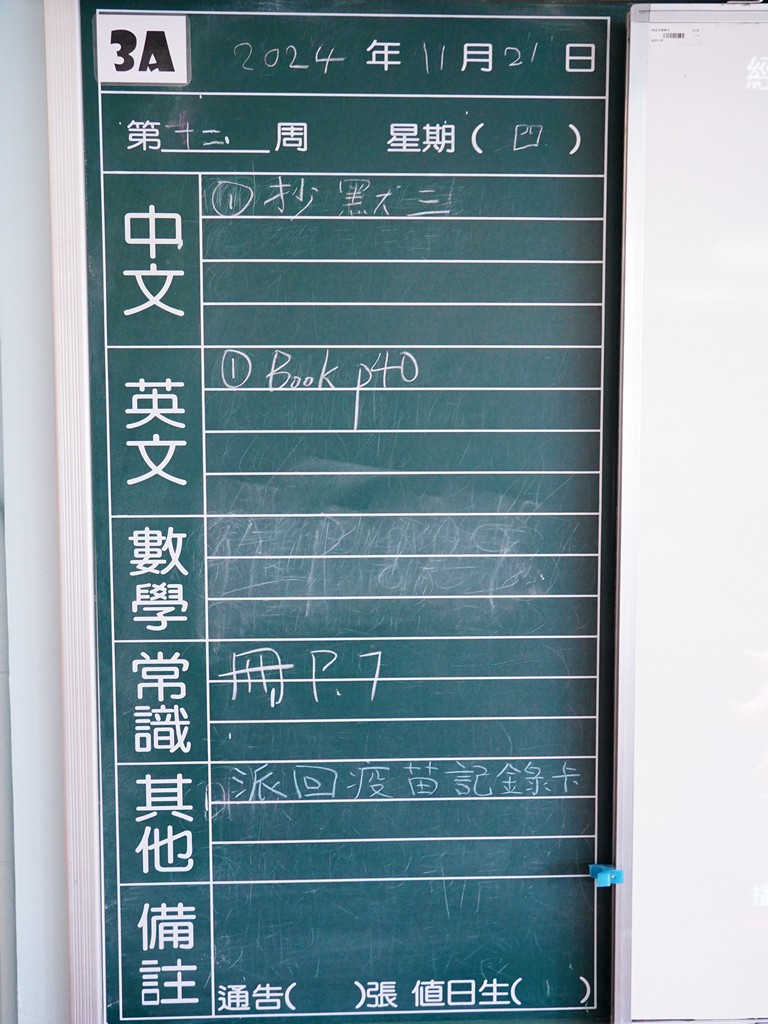 3A 2024 年 11 月 21 日
第 十二 周 星期( 四 )
中文
① 抄默三
英文
① Book p40
數學
常識
冊 P.7
其他
派回疫苗記錄卡
備註
通告( )張 值日生( )